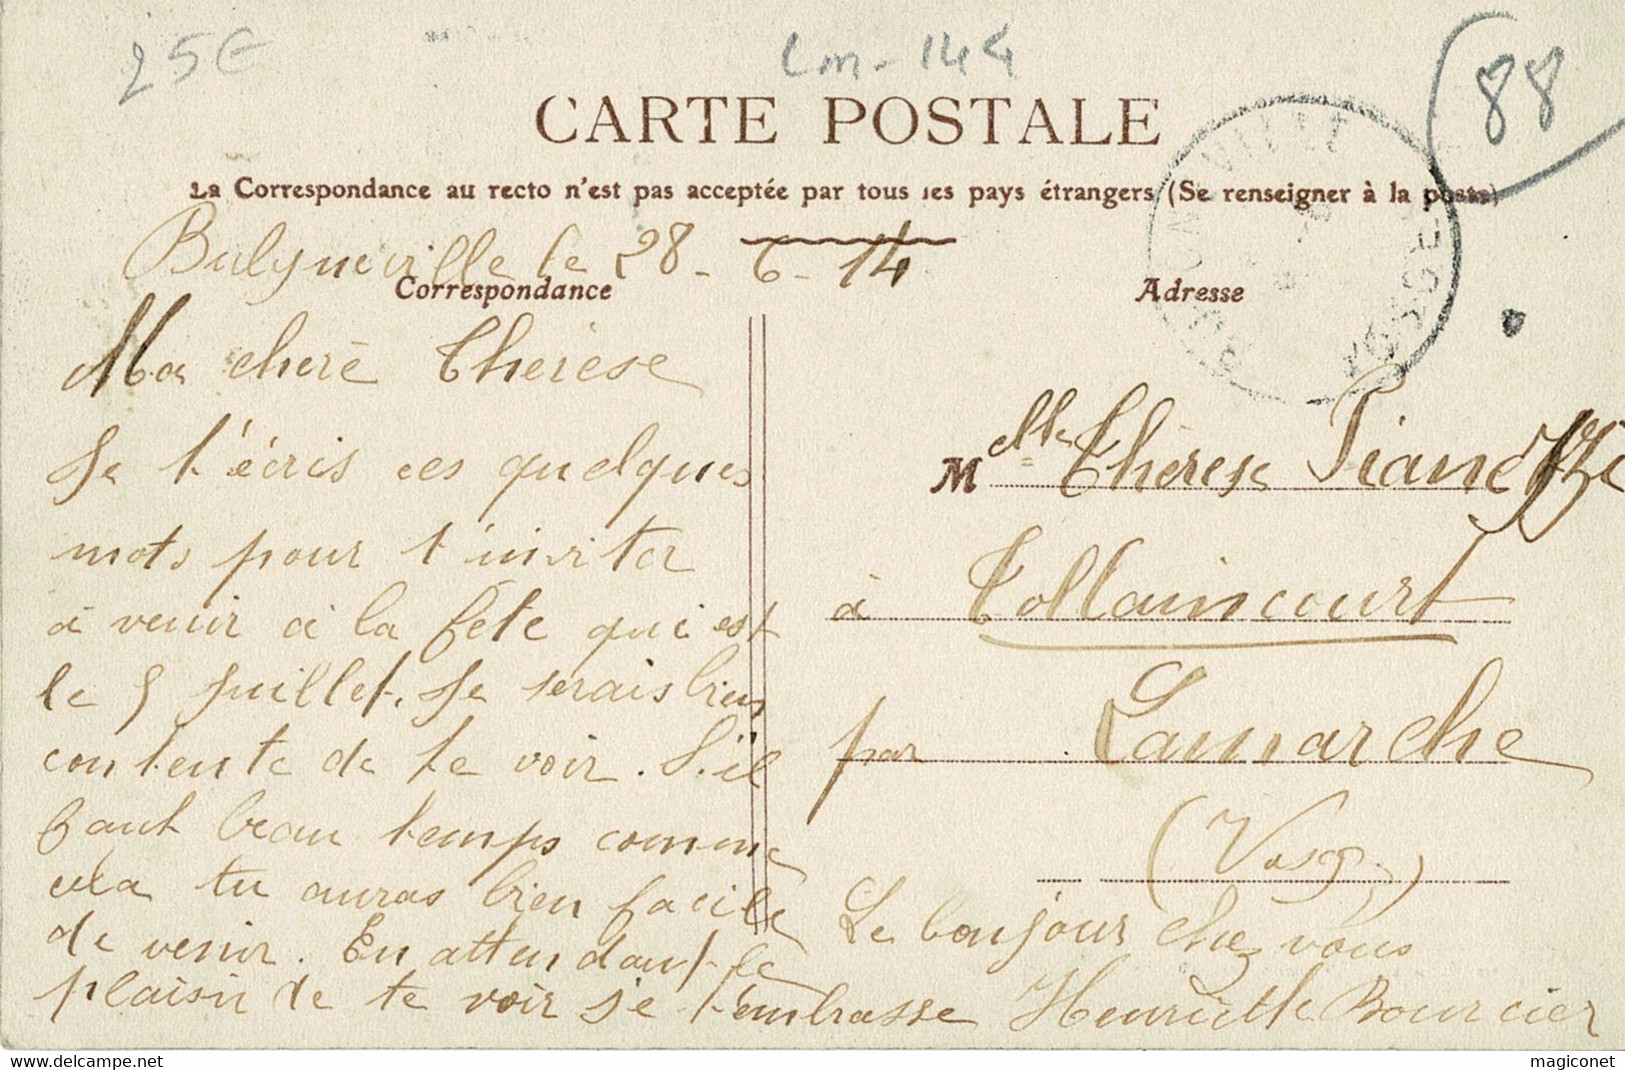 25€
Lm-144
88
CARTE POSTALE
La Correspondance au recto n'est pas acceptée par tous les pays étrangers (Se renseigner à la poste)
Bulgnéville le 28-6-14
Correspondance
Ma chère Thérèse
Je t'écris ces quelques
mots pour t'inviter
à venir à la fête qui est
le 5 Juillet. Je serais bien
contente de te voir. S'il
faut beau temps comme
cela tu auras bien facile
de venir. En attendant le
plaisir de te voir je t'embrasse Henriette Bourcier
Adresse
VILLE
VOSGES
Melle Thérèse
à Tollaincourt
par Lamarche
(Vosges)
Le bonjour chez vous
magiconet